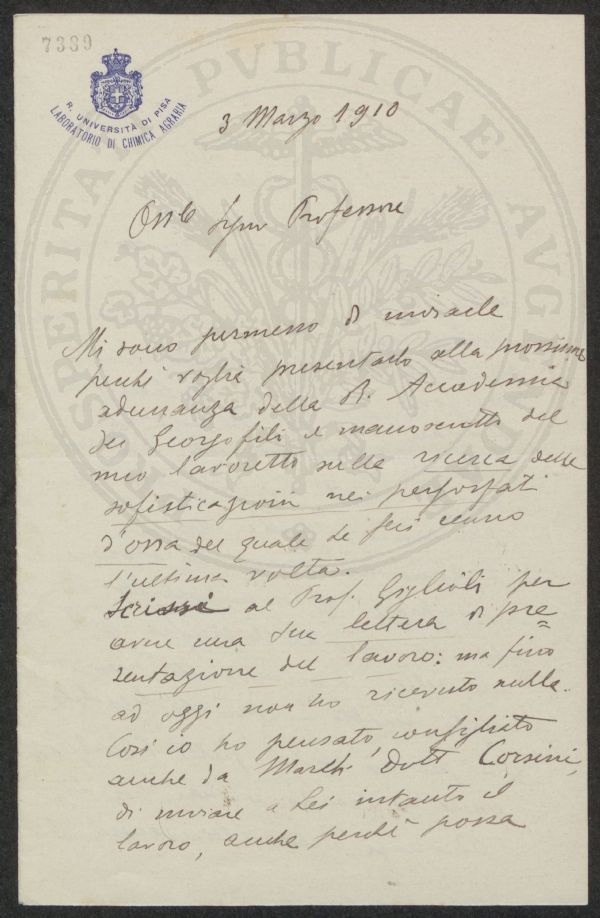 7389
R. UNIVERSITÀ DI PISA
LABORATORIO DI CHIMICA AGRARIA
PROSPERITATI PVBLICAE AVGENDAE
3 Marzo 1910
Professore
Mi sono permesso di inviarle
perchè voglia presentarlo alla prossima
adunanza della R. Accademia
dei Georgofili il manoscritto del
mio lavoretto sulla ricerca delle
sofisticazioni nei perfosfati
d'ossa del quale Le feci cenno
l'ultima volta.
Scrissi al Prof. Giglioli per
avere una sua lettera di pre=
sentazione del lavoro: ma fino
ad oggi non ho ricevuto nulla.
Così io ho pensato, consigliato
anche da Dott Corsini,
di inviare a Lei intanto il
lavoro, anche perchè possa